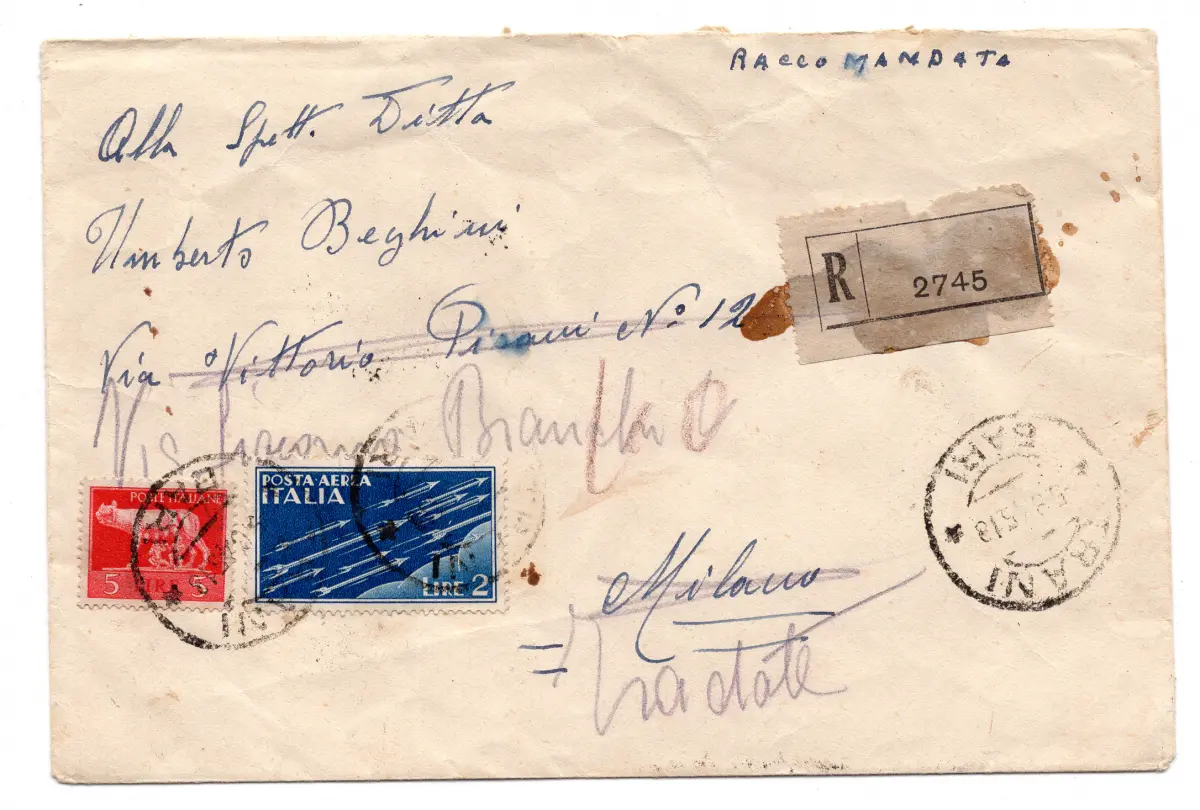 RACCOMANDATA
Alla Spett. Ditta
Umberto Beghini
R 2745
Via Vittorio Pisani N° 12
Via Bianchi
POSTE ITALIANE
5 LIRE 5
POSTA·AEREA
ITALIA
LIRE 2
TRANI
BARI
Milano
Tradate